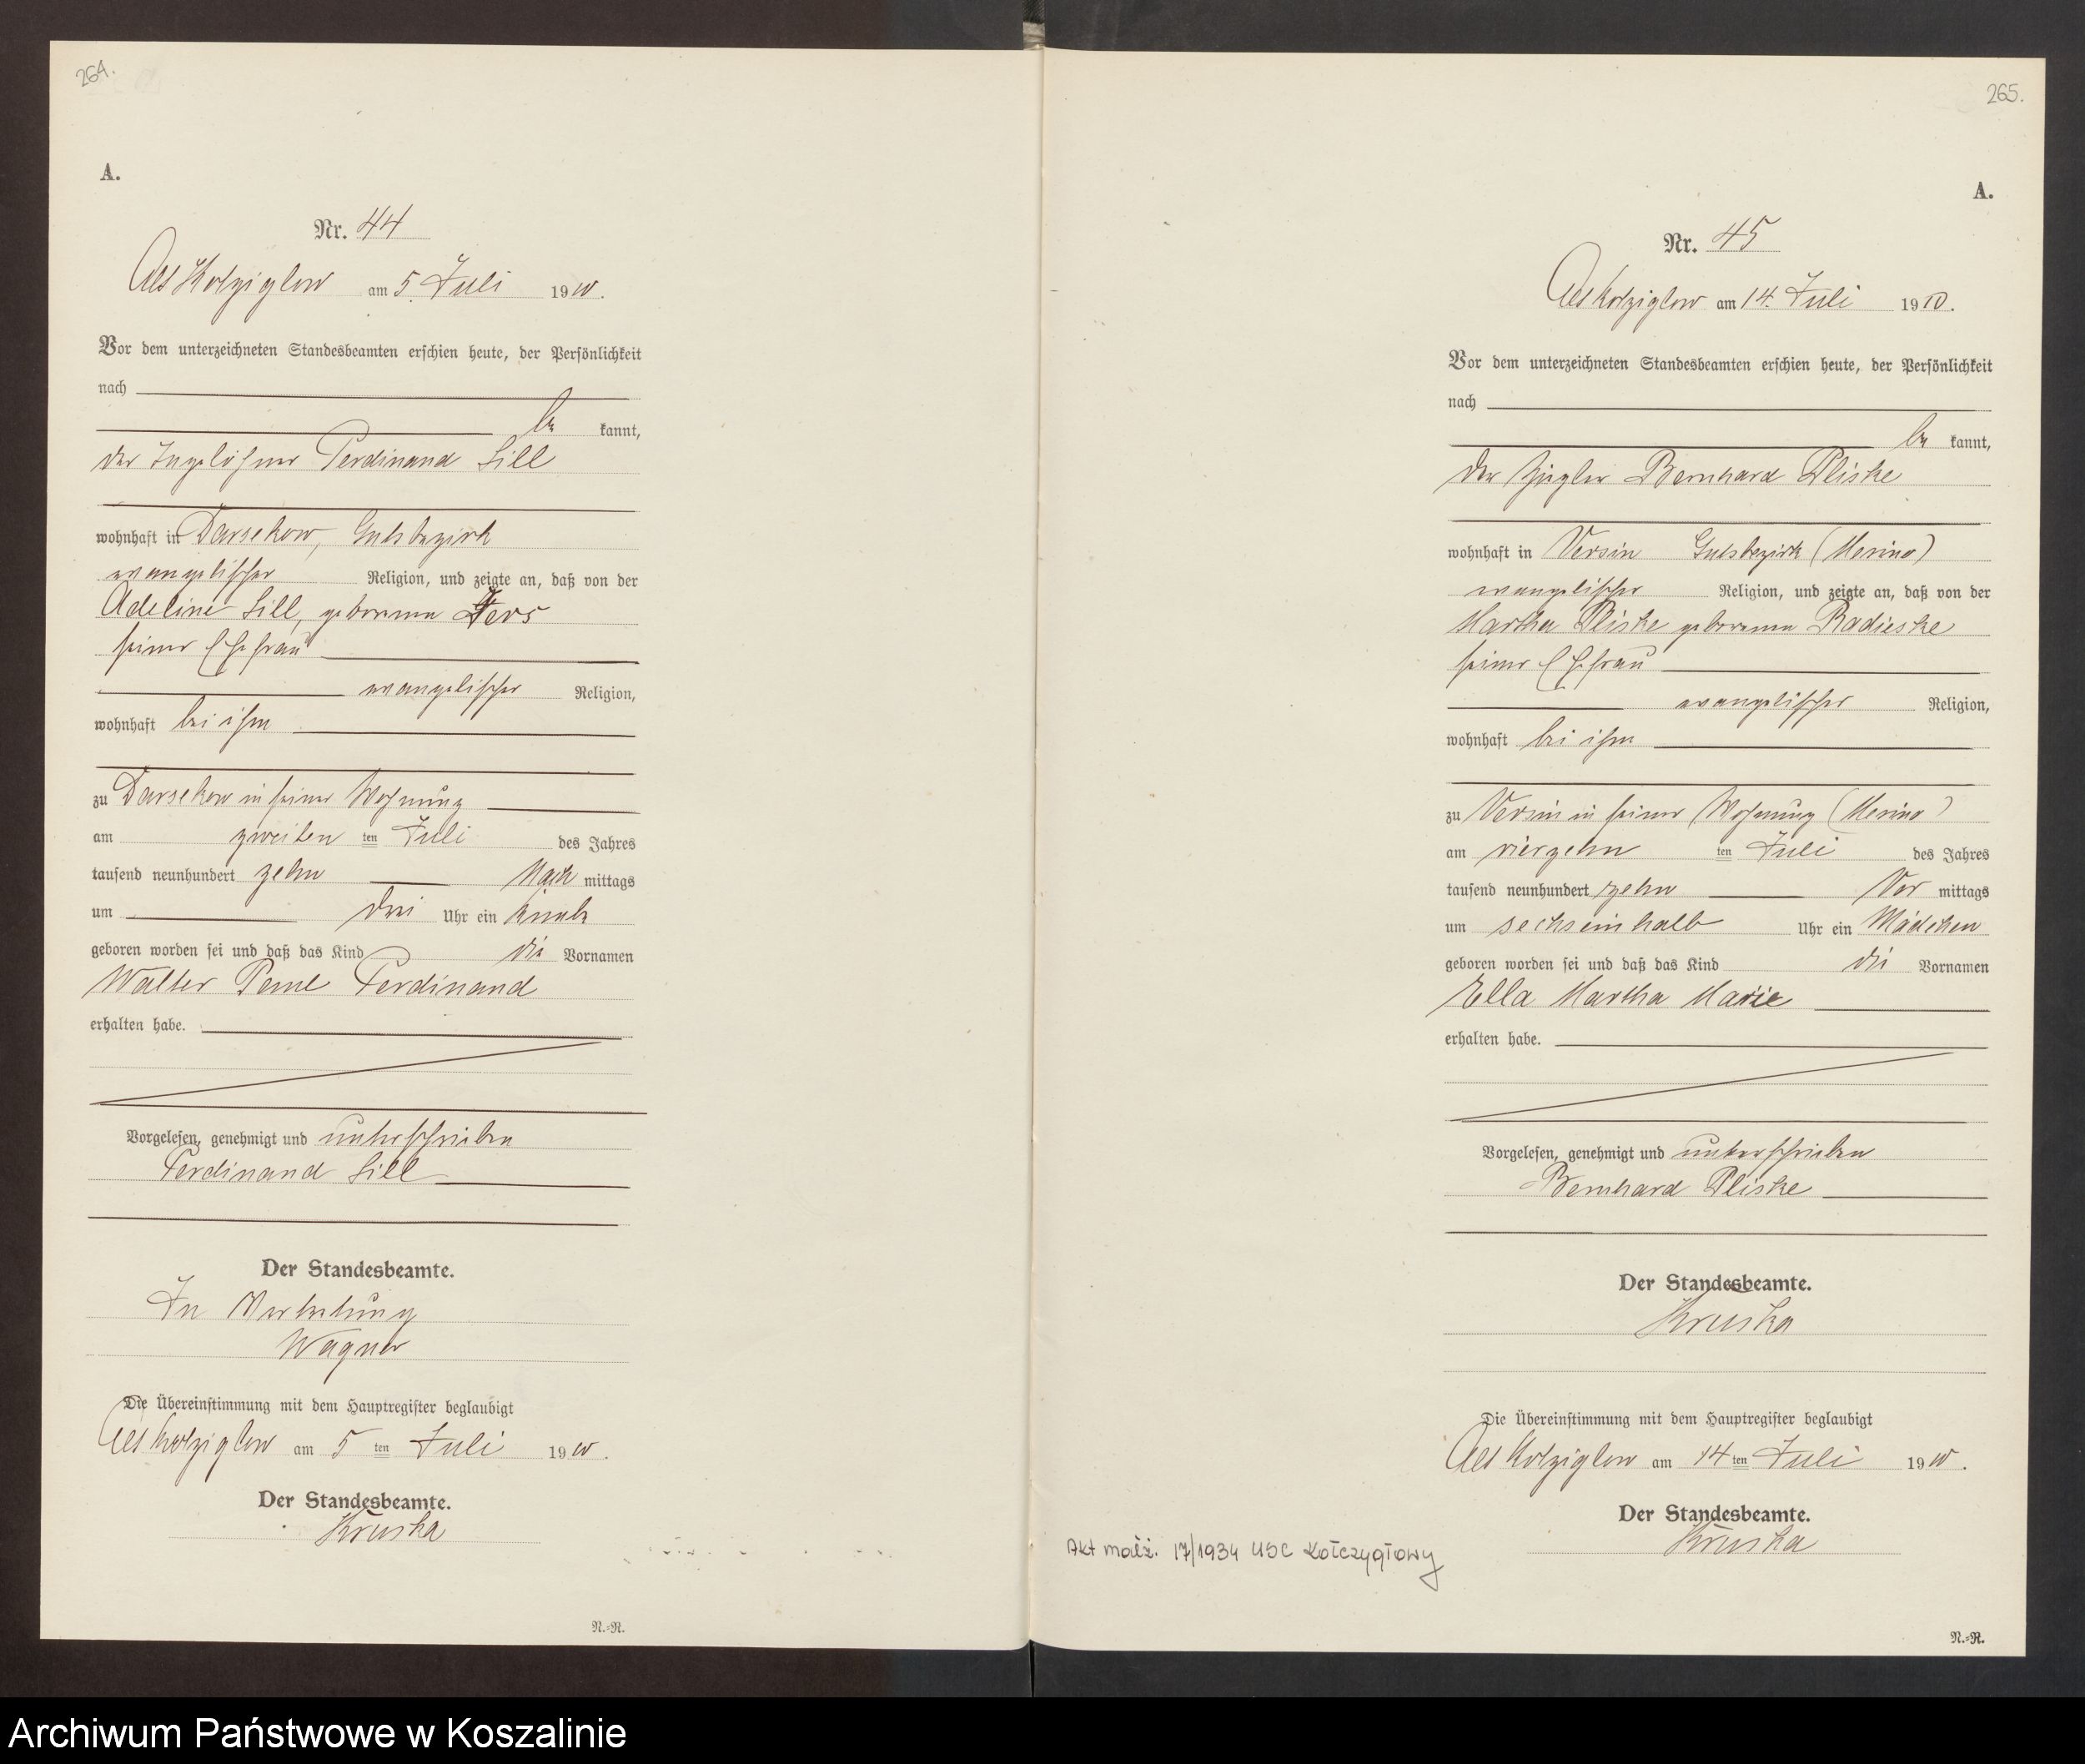 264.
A.
Nr. 44
Alt Kolziglow am 5. Juli 1910.
Vor dem unterzeichneten Standesbeamten erschien heute, der Persönlichkeit
nach
be kannt,
der Tagelöhner Ferdinand Sill
wohnhaft in Darsekow, Gutsbezirk
evangelischer Religion, und zeigte an, daß von der
Adeline Sill, geborenen
seiner Ehefrau
evangelischer Religion,
wohnhaft bei ihm
zu Darsekow in seiner Wohnung
am zweiten ten Juli des Jahres
tausend neunhundert zehn Nach mittags
um drei Uhr ein Knabe
geboren worden sei und daß das Kind die Vornamen
Walter Paul Ferdinand
erhalten habe.
Vorgelesen, genehmigt und unterschrieben
Ferdinand Sill
Der Standesbeamte.
In Vertretung
Wagner
Die Übereinstimmung mit dem Hauptregister beglaubigt
Alt Kolziglow am 5 ten Juli 1910.
Der Standesbeamte.
Kruska
N.=R.
265.
A.
Nr. 45
Alt Kolziglow am 14. Juli 1910.
Vor dem unterzeichneten Standesbeamten erschien heute, der Persönlichkeit
nach
be kannt,
der Ziegler Bernhard Pliske
wohnhaft in Versin Gutsbezirk (Merino)
evangelischer Religion, und zeigte an, daß von der
Martha Pliske geborenen Radieske
seiner Ehefrau
evangelischer Religion,
wohnhaft bei ihm
zu Versin in seiner Wohnung (Merino)
am vierzehn ten Juli des Jahres
tausend neunhundert zehn Vor mittags
um sechseinhalb Uhr ein Mädchen
geboren worden sei und daß das Kind die Vornamen
Ella Martha Marie
erhalten habe.
Vorgelesen, genehmigt und unterschrieben
Bernhard Pliske
Der Standesbeamte.
Kruska
Die Übereinstimmung mit dem Hauptregister beglaubigt
Alt Kolziglow am 14 ten Juli 1910.
Der Standesbeamte.
Kruska
Akt małż. 17/1934 USC Kołczygłowy
N.=R.
Archiwum Państwowe w Koszalinie